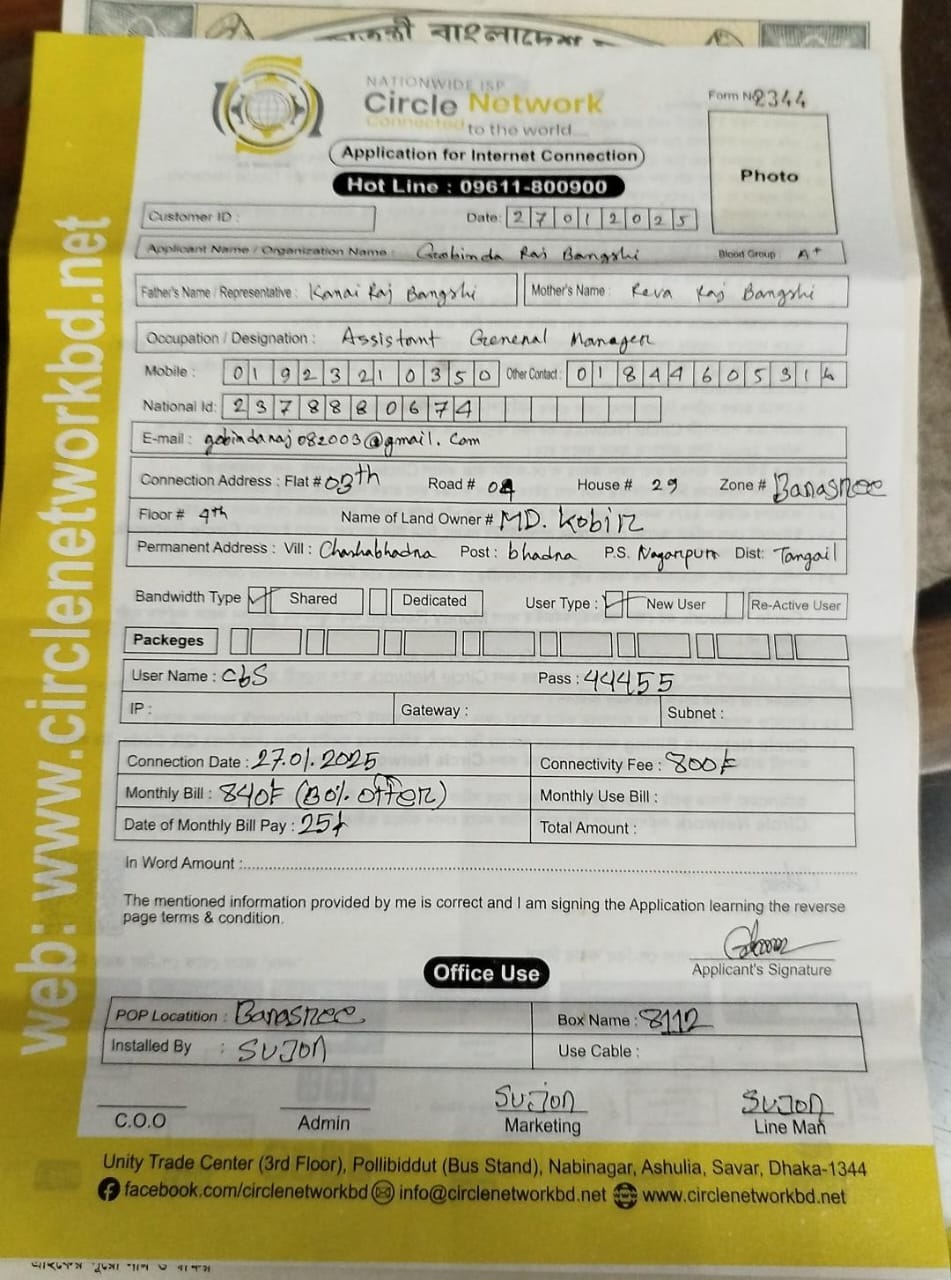 NATIONWIDE ISP
Circle Network
Connected to the world...
Form No 2344
Application for Internet Connection
Hot Line : 09611-800900
Photo
Customer ID :
Date: 27012025
Applicant Name / Organization Name : Gobinda Raj Bangshi Blood Group : A+
Father's Name / Representative : Kanai Raj Bangshi Mother's Name : Reva Raj Bangshi
Occupation / Designation : Assistant General Manager
Mobile : 01923210350 Other Contact : 01844605314
National Id: 2378880674
E-mail : gobindaraj082003@gmail.com
Connection Address : Flat # 03th Road # 04 House # 29 Zone # Banasree
Floor # 4th Name of Land Owner # MD. Kobir
Permanent Address : Vill : Charbhadna Post : bhadna P.S. Nagarpur Dist: Tangail
Bandwidth Type Shared Dedicated User Type : New User Re-Active User
Packeges
User Name : cbs Pass : 44455
IP : Gateway : Subnet :
Connection Date : 27.01.2025 Connectivity Fee : 800৳
Monthly Bill : 840৳ (30% offer) Monthly Use Bill :
Date of Monthly Bill Pay : Total Amount :
In Word Amount :
The mentioned information provided by me is correct and I am signing the Application learning the reverse
page terms & condition.
Applicant's Signature
Office Use
POP Locatition : Banasree Box Name : 8112
Installed By : SUJON Use Cable :
SUJON SUJON
C.O.O Admin Marketing Line Man
Unity Trade Center (3rd Floor), Pollibiddut (Bus Stand), Nabinagar, Ashulia, Savar, Dhaka-1344
facebook.com/circlenetworkbd info@circlenetworkbd.net www.circlenetworkbd.net
web: www.circlenetworkbd.net